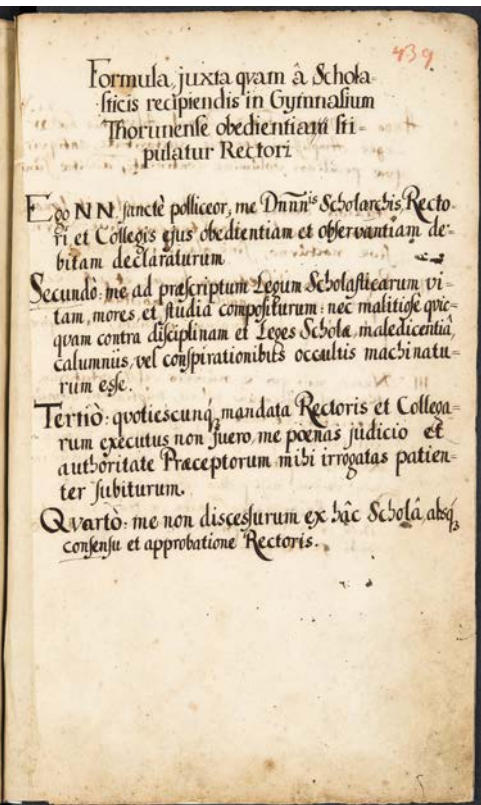 439
Formula, juxta qvam â Schola-
sticis recipiendis in Gymnasium
Thorunense obedientiam sti-
pulatur Rectori
Ego N N. sanctè polliceor, me Dnn̄nis Scholarchis, Recto-
ri et Collegis ejus obedientiam et observantiam de-
bitam declaraturum
Secundò: me ad præscriptum Legum Scholasticarum vi-
tam, mores et studia compositurum: nec malitiose qvic-
qvam contra disciplinam et Leges Scholæ, maledicentiâ,
calumniis, vel conspirationibus occultis machinatu-
rum esse.
Tertiò: qvotiescunq, mandata Rectoris et Collega-
rum executus non fuero, me pœnas judicio et
authoritate Præceptorum mihi irrogatas patien-
ter subiturum.
Qvartò: me non discessurum ex hâc Scholâ, absq,
consensu et approbatione Rectoris.